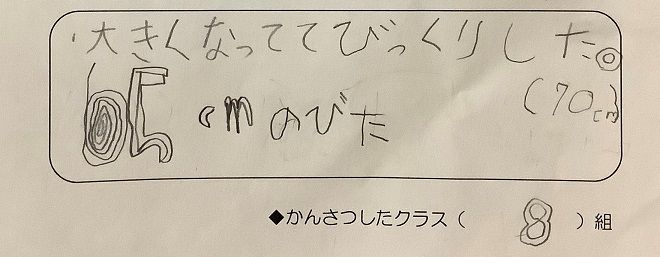 ・大きくなっててびっくりした。
65cmのびた
(70cm)
◆かんさつしたクラス( 8 )組